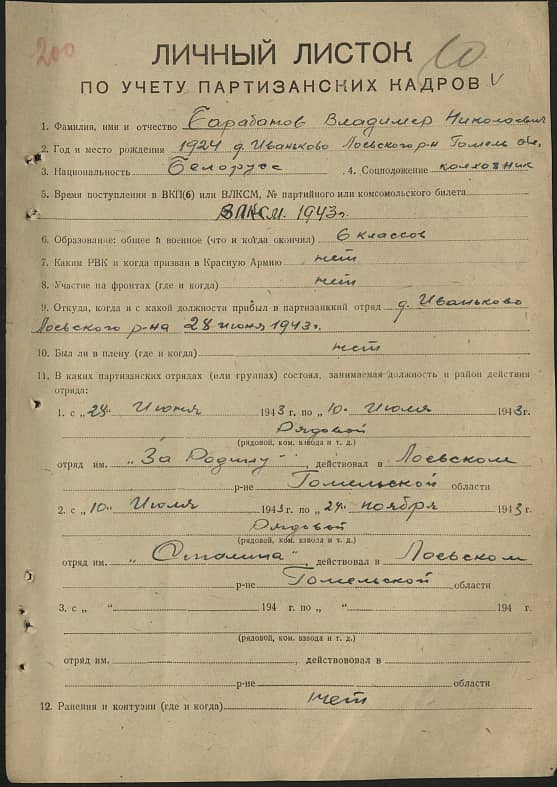 200
10
ЛИЧНЫЙ ЛИСТОК
ПО УЧЕТУ ПАРТИЗАНСКИХ КАДРОВ
1. Фамилия, имя и отчество Барабанов Владимир Николаевич
2. Год и место рождения 1924 д. Иваньково Лоевского р-н Гомель обл.
3. Национальность Белорусс 4. Соцположение колхозник
5. Время поступления в ВКП(б) или ВЛКСМ, № партийного или комсомольского билета
ВЛКСМ 1943г.
6. Образование: общее и военное (что и когда окончил) 6 классов
7. Каким РВК и когда призван в Красную Армию нет
8. Участие на фронтах (где и когда) нет
9. Откуда, когда и с какой должности прибыл в партизанский отряд д. Иваньково
Лоевского р-на 28 июня 1943г.
10. Был ли в плену (где и когда) нет
11. В каких партизанских отрядах (или группах) состоял, занимаемая должность и район действия
отряда:
1. с „28“ Июня 1943 г. по „10“ Июля 1943г.
Рядовой
(рядовой, ком. взвода и т. д.)
отряд им. „За Родину“, действовал в Лоевском
р-не Гомельской области
2. с „10“ Июля 1943 г. по „24“ ноября 1943г.
Рядовой
(рядовой, ком. взвода и т. д.)
отряд им. „Сталина“, действовал в Лоевском
р-не Гомельской области
3. с „ “ 194 г. по „ “ 194 г.
(рядовой, ком. взвода и т. д.)
отряд им. , действововал в
р-не области
12. Ранения и контузии (где и когда) нет